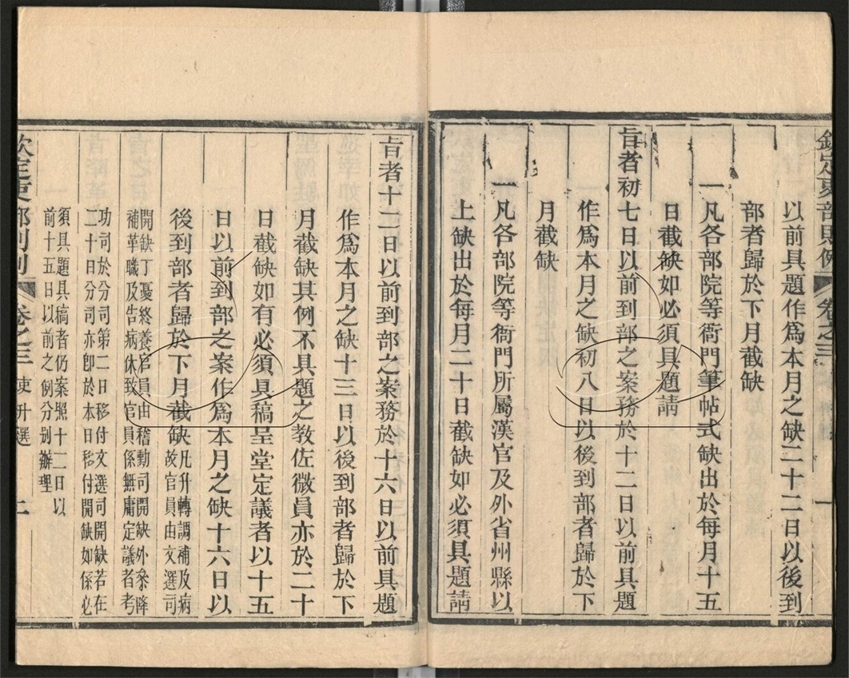 欽定吏部則例 卷之三
以前具題作爲本月之缺二十二日以後到
部者歸於下月截缺
一凡各部院等衙門筆帖式缺出於每月十五
日截缺如必須具題請
旨者初七日以前到部之案務於十二日以前具題
作爲本月之缺初八日以後到部者歸於下
月截缺
一凡各部院等衙門所屬漢官及外省州縣以
上缺出於每月二十日截缺如必須具題請
旨者十二日以前到部之案務於十六日以前具題
作爲本月之缺十三日以後到部者歸於下
月截缺其例不具題之教佐微員亦於二十
日截缺如有必須具稿呈堂定議者以十五
日以前到部之案作爲本月之缺十六日以
後到部者歸於下月截缺凡升轉調補及病故官員由文選司
開缺丁憂終養官員由稽勳司開缺外叅降
補革職及告病休致官員係無庸定議者考
功司於分司第二日移付文選司開缺若在
二十日分司亦卽於本日移付開缺如係必
須具題具稿者仍案照十二日以
前十五日以前之例分别辦理
欽定吏部則例 卷之三 升選 二